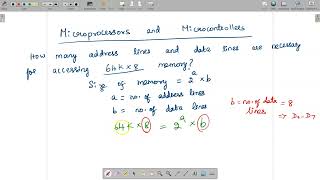 Microprocessors and Microcontrollers
How many address lines and data lines are necessary
for accessing 64K×8 memory?
Size of memory = 2^a × b
a = no. of address lines
b = no. of data lines
64K × 8 = 2^a × b
b = no. of data lines = 8
⇒ D0-D7